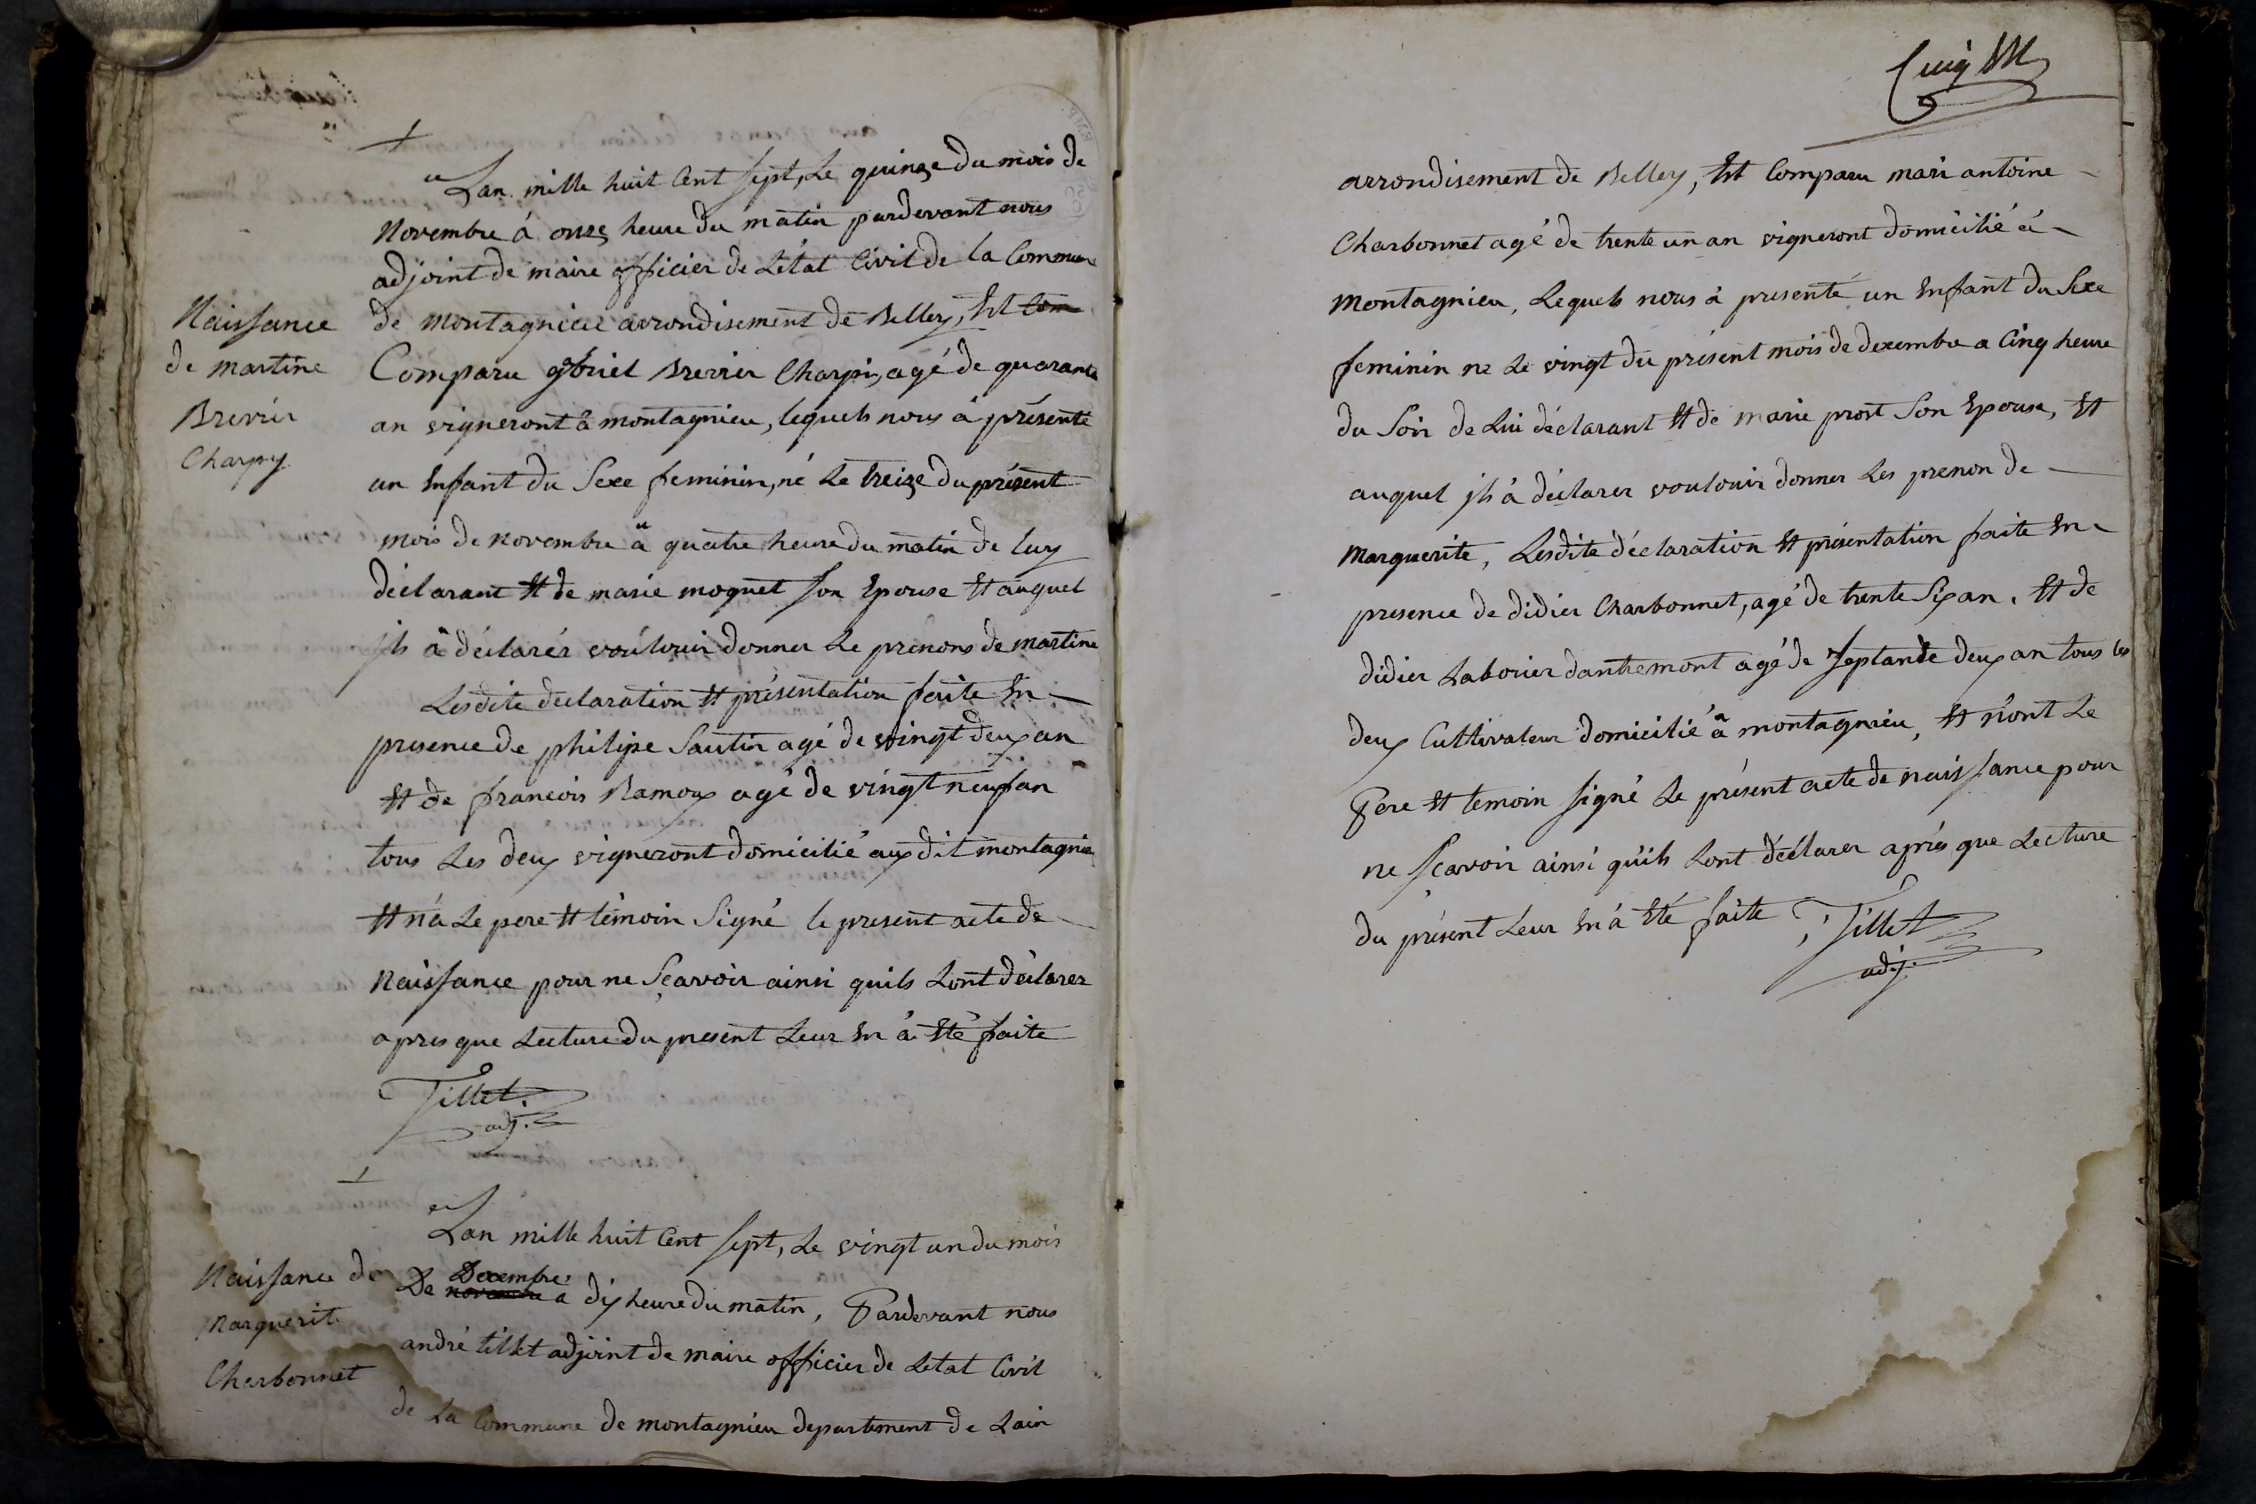 Lan mille huit Cent sept, Le quinze du mois de
Novembre à onze heure du matin pardevant nous
adjoint de maire officier de Létat Civil de la Commune
de montagnieu arrondisement de Belley, Est Com
Comparu gbriel Brevier Charpi, agé de quarante
an vigneront à montagnieu, lequels nous à présenté
un Enfant du Sexe feminin, né Le treize du présent
mois de novembre à quatre heure du matin de luy
déclarant Et de marie moquet son Epouse Et auquel
ils à déclarér voulouir donner Le prenons de martine
Lesdite declaration Et présentation faite En
presence de philipe Sautin agé de vingt deux an
Et de francois Ramoux agé de vingt neuf an
tous Les deux vigneront domicilié aux dit montagnieu
Et n'a Le pere Et témoin Signé le present acte de
Naissance pour ne Sçavoir ainsi quils Lont déclarer
apres que Lecture du present Leur En à Eté faite
Tillet
adj.
Naissance
de martine
Brevier
Charpy
Lan mille huit Cent sept, Le vingt un du mois
De novembre Decembre a dix heure du matin, Pardevant nous
andré tillet adjoint de maire officier de Letat Civil
de La Commune de montagnieu departement de Lain
Naissance de
Marguerit
Charbonnet
arrondisement de Belley, Est Comparu mari antoine
Charbonnet agé de trente un an vigneront domicilié à
montagnieu, Lequels nous à presenté un Enfant du Sexe
feminin né Le vingt du présent mois de decembre a Cinq heure
du Soir de Lui déclarant Et de marie prost Son Epouse, Et
auquel ils à déclarer voulouir donner Les prenon de
Marguerite, Lesdite déclaration Et présentation faite En
presence de didier Charbonnet, agé de trente Six an, Et de
didier Laborier dantremont agé de Septande deux an tous les
deux Cultivateur domicilié à montagnieu, Et n'ont Le
Pere Et temoin signé Le présent acte de naissance pour
ne sçavoir ainsi quils Lont déclarer après que Lecture
du présent Leur En à Eté faite, Tillet
adj.